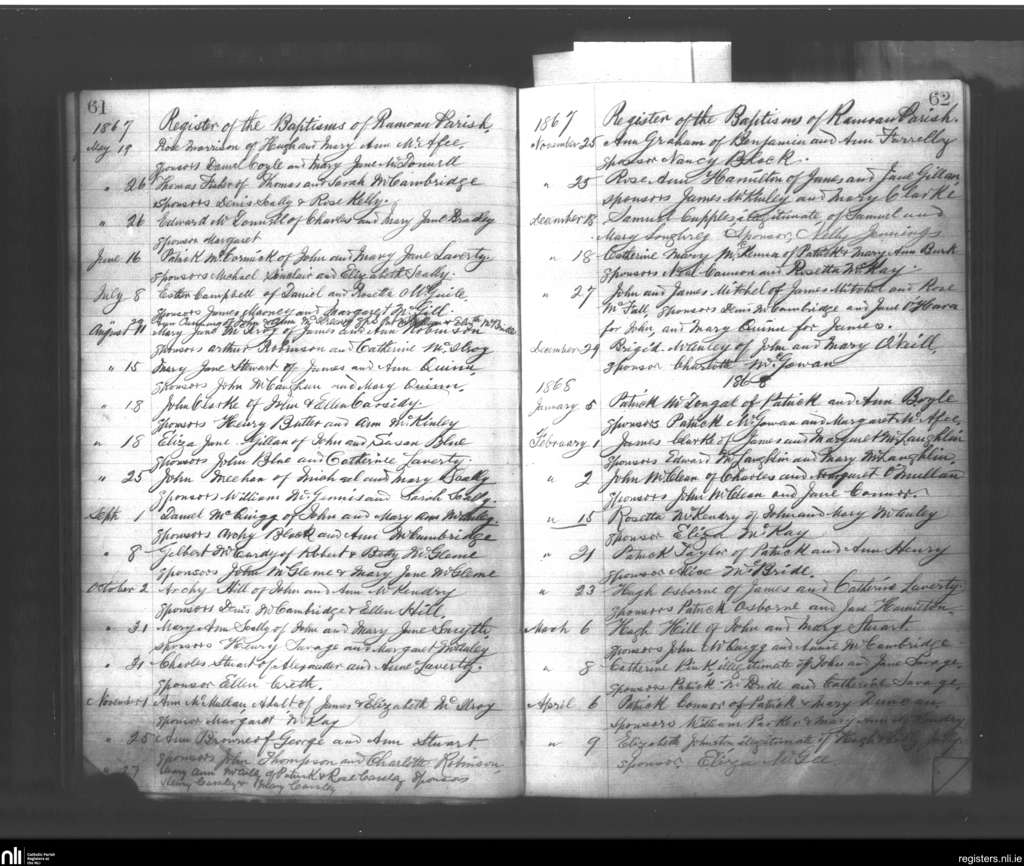 61
1867 Register of the Baptisms of Ramoan Parish,
May 19 Rose Morrison of Hugh and Mary Ann McAfee,
sponsors Daniel Coyle and Mary Jane McDonnell
" 26 Thomas of Thomas and Sarah McCambridge
Sponsors Denis Scally & Rose Kelly.
" 26 Edward McDonnell of Charles and Mary Jane Bradley
Sponsor Margaret
June 16 Patrick McCormick of John and Mary Jane Laverty.
Sponsors Michael Sinclair and Elizabeth Scally.
July 8 Ester Campbell of Daniel and Rosetta
Sponsors James and Margaret McGill.
" 29
August 11 Mary Jane McIlroy of James and Ann Robinson
Sponsors Arthur Robinson and Catherine McIlroy
" 15 Mary Jane Stewart of James and Ann Quinn,
Sponsors John McCaughan and Mary Quinn,
" 18 John Clarke of John & Ellen Cassidy.
Sponsors Henry Butler and Ann McKinley
" 18 Eliza Jane Gillan of John and Susan Blue
Sponsors John Blue and Catherine Laverty.
" 25 John Meehan of Michael and Mary Scally
Sponsors William McGinnis and Sarah Scally.
Sept. 1 Daniel McQuigg of John and Mary Ann McAuley.
Sponsors Archy Black and Ann McCambridge
" 8 Gilbert McCardy of Robert & Betty McGleme
Sponsors John McGleme & Mary Jane McGleme
October 2 Archy Hill of John and Ann McKendry
Sponsors Denis McCambridge & Ellen Hill.
" 31 Mary Ann Scally of John and Mary Jane Smyth
Sponsors Henry Savage and Margaret McAuley
" 31 Charles Stuart of Alexander and Anne Laverty.
Sponsor Ellen
November 1 Ann McMullan, Adult of James & Elizabeth McIlroy
Sponsor Margaret McKay
" 25 Ann Browne of George and Ann Stuart.
Sponsors John Thompson and Charlotte Robinson.
" 27 Mary Ann of Patrick & Rose Sponsors
Henry & Mary
62
1867 Register of the Baptisms of Ramoan Parish.
November 25 Ann Graham of Benjamin and Ann Farrelly
Sponsor Nancy Black.
" 25 Rose Ann Hamilton of James and Jane Gillan,
Sponsors James McKinley and Mary Clarke
December 18 Samuel Cupples illegitimate of Samuel and
Mary Loughrey Sponsor, Nelly Jennings
" 18 Catherine Mary McKenna of Patrick & Mary Ann Burk
Sponsors Neal Cannon and Rosetta McKay.
" 27 John and James Mitchel of James Mitchel and Rose
McFall, Sponsors Denis McCambridge and Jane O'Hara
for John, and Mary Quinn for James.
December 29 Brigid McAuley of John and Mary O'Neill,
Sponsor Charlotte McGowan
1868 1868
January 5 Patrick McGongal of Patrick and Ann Boyle
Sponsors Patrick McGowan and Margaret McAfee,
February 1 James Clarke of James and Margaret McLaughlin
Sponsors Edward McLaughlin and Mary McLaughlin,
" 2 John McClean of Charles and Margaret O'Mullan
Sponsors John McClean and Jane Connor.
" 15 Rosetta McKendry of John and Mary McAuley
Sponsor Eliza McKay
" 21 Patrick Taylor of Patrick and Ann Henry
Sponsor Alice McBride.
" 23 Hugh Osborne of James and Catherine Laverty.
Sponsors Patrick Osborne and Jane Hamilton.
March 6 Hugh Hill of John and Mary Stuart.
Sponsors John McQuigg and Annie McCambridge
" 8 Catherine illegitimate of John and Jane Savage,
Sponsors Patrick McBride and Catherine Savage.
April 6 Patrick Connor of Patrick & Mary Duncan,
Sponsors William Parker & Mary Ann McKendry
" 9 Elizabeth Johnston illegitimate of Hugh &
Sponsor Eliza McGee
nli Catholic Parish Registers at the NLI
registers.nli.ie